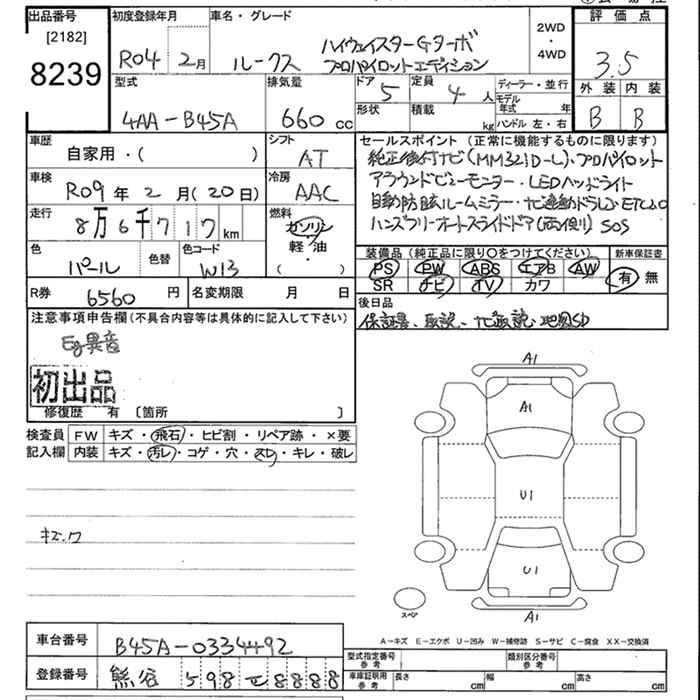 出品番号
[2182]
8239
初度登録年月
R04 2月
車名・グレード
ルークス
ハイウェイスターGターボ
プロパイロットエディション
2WD
・
4WD
評価点
3.5
外装 内装
B B
型式
4AA-B45A
排気量
660 cc
ドア 5
定員 4 人
形状
積載 kg
ディーラー・並行
モデル年式 年
ハンドル 左・右
車歴
自家用・( )
シフト
AT
車検
R09年 2月(20日)
冷房
AAC
走行
8万6千717km
燃料
ガソリン
軽油
( )
色
パール
色替
色コード
W13
R券 6560 円
名変期限 月 日
セールスポイント(正常に機能するものに限ります)
純正後付ナビ(MM321D-L)、プロパイロット
アラウンドビューモニター、LEDヘッドライト
自動防眩ルームミラー・ナビ連動ドラレコETC2.0
ハンズフリーオートスライドドア(両側) SOS
装備品(純正品に限り○をつけてください)
PS PW ABS エアB AW
SR ナビ TV カワ
新車保証書
有 無
後日品
保証書、取説、ナビ取説、地図SD
注意事項申告欄(不具合内容等は具体的に記入して下さい)
Eg異音
初出品
修復歴 有 〔箇所 〕
検査員記入欄
FW キズ・飛石・ヒビ割・リペア跡・×要
内装 キズ・汚レ・コゲ・穴・スレ・キレ・破レ
キズ、ク
A1
A1
U1
U1
A1
スペア
A-キズ E-エクボ U-凹み W-補修跡 S-サビ C-腐食 XX-交換済
車台番号 B45A-0334492
登録番号 熊谷 598 8888
型式指定番号 参考
類別区分番号 参考
車庫証明用 参考
長さ cm 幅 cm 高さ cm